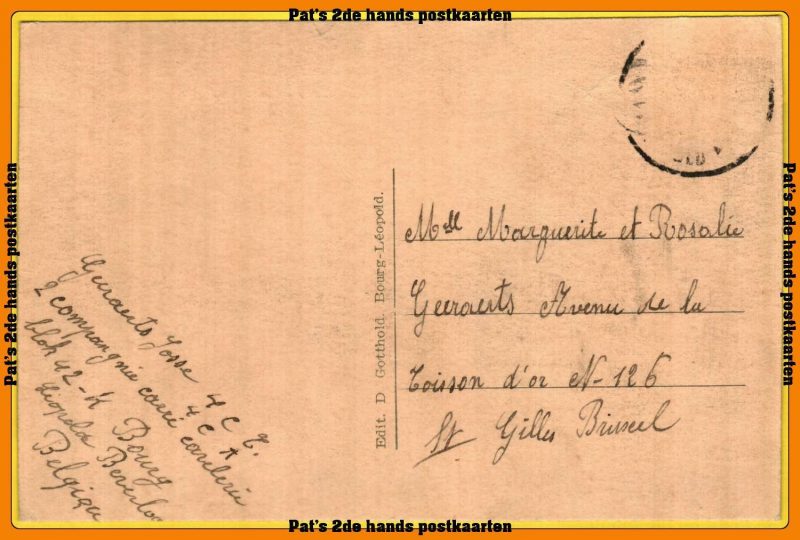 Pat's 2de hands postkaarten
Pat's 2de hands postkaarten
Pat's 2de hands postkaarten
Mlle Marguerite et Rosalie
Geeraerts Avenu de la
Toison d'or N- 126
St Gilles Bruxel
Edit. D Gotthold. Bourg-Léopold.
Geeraerts Josse
2 compagnie
blok 42-A Bourg
Leopold Beverloo
Belgique
Pat's 2de hands postkaarten